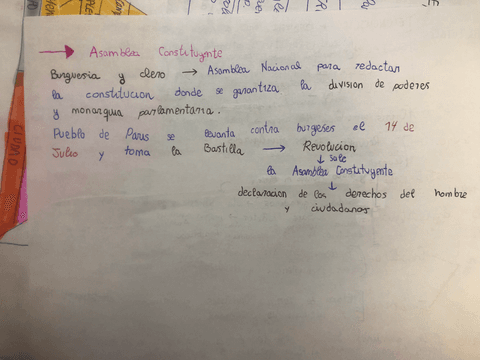 → Asamblea Constituyente
Burguesia y clero → Asamblea Nacional para redactar
la constitucion donde se garantiza la division de poderes
y monarquia parlamentaria.
Pueblo de Paris se levanta contra burgeses el 14 de
Julio y toma la Bastilla → Revolucion
↓ sale
la Asamblea Constituyente
↓
declaracion de los derechos del hombre
y ciudadanos